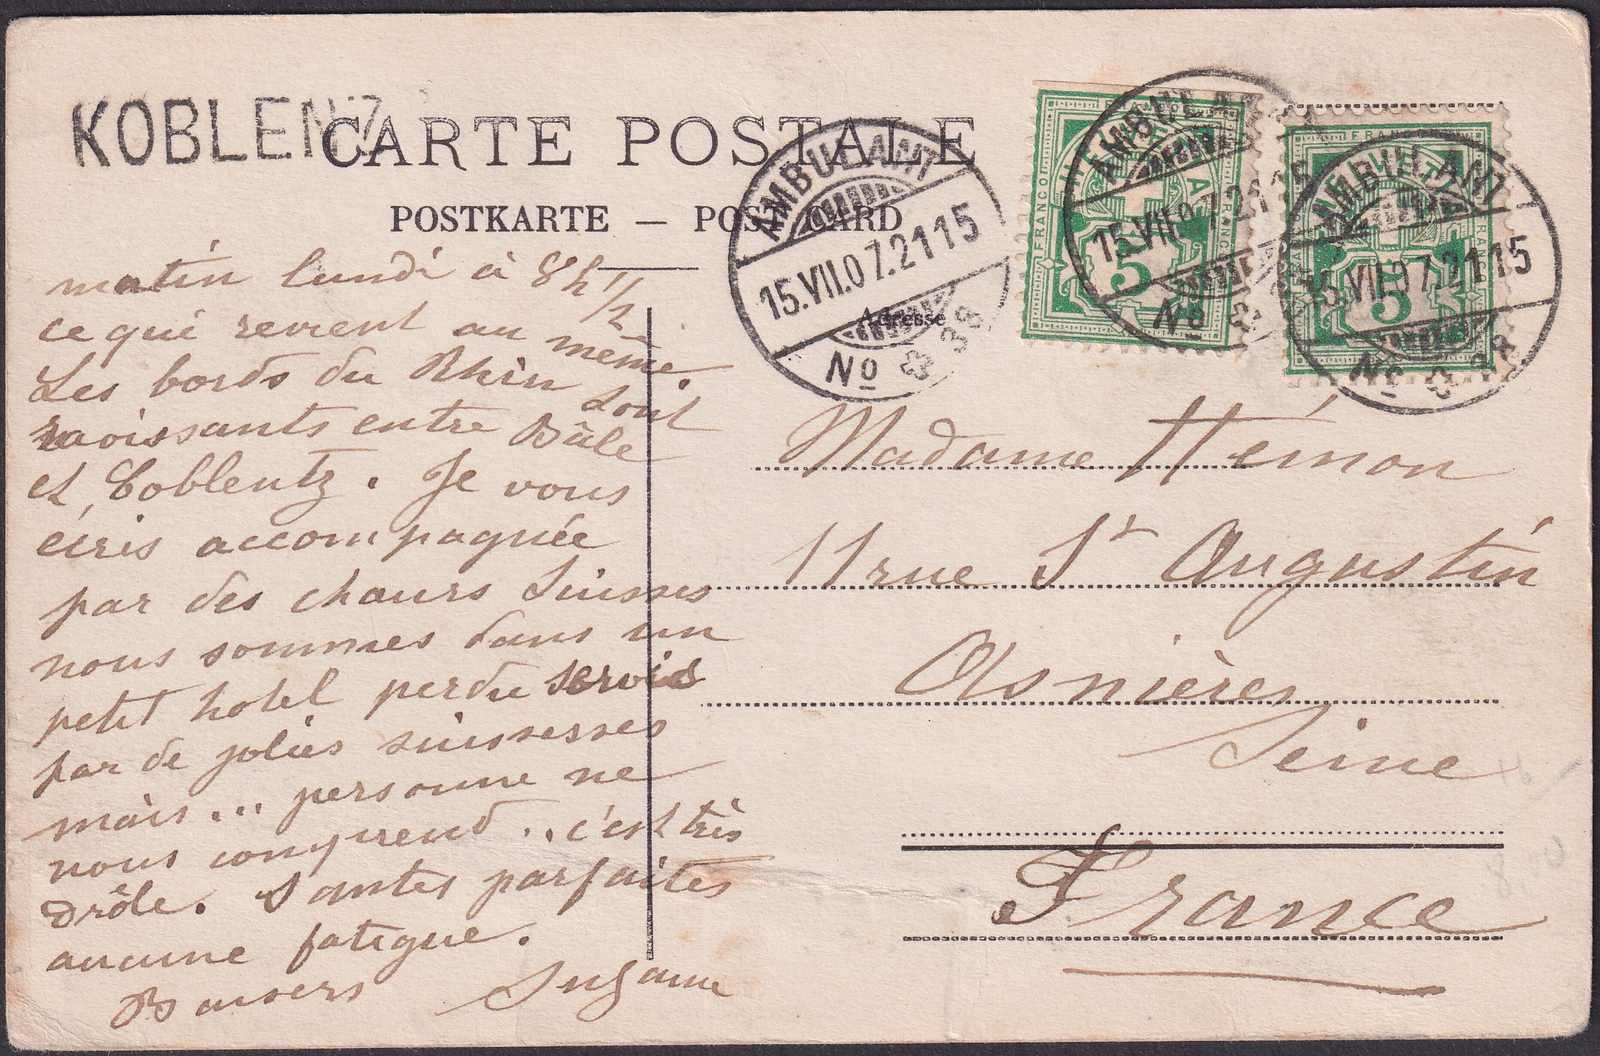 KOBLENZ
CARTE POSTALE
POSTKARTE — POST CARD
Adresse
AMBULANT
15.VII.07.21 15
No 38
AMBULANT
15.VII.07.21 15
No
AMBULANT
15.VII.07.21 15
No 38
FRANCO
FRANCO
5
FRANCO
FRANCO
5
matin lundi à 8h 1/2
ce qui revient au même.
Les bords du Rhin sont
ravissants entre Bâle
et Coblentz. Je vous
écris accompagnée
par des chœurs Suisses
nous sommes dans un
petit hotel perdu servis
par de jolies suissesses
mais ... personne ne
nous comprend .. c'est très
drôle. Santés parfaites
aucune fatigue.
Baisers Suzanne
Madame Hémon
11 rue St Augustin
Asnières
Seine
France
8,00